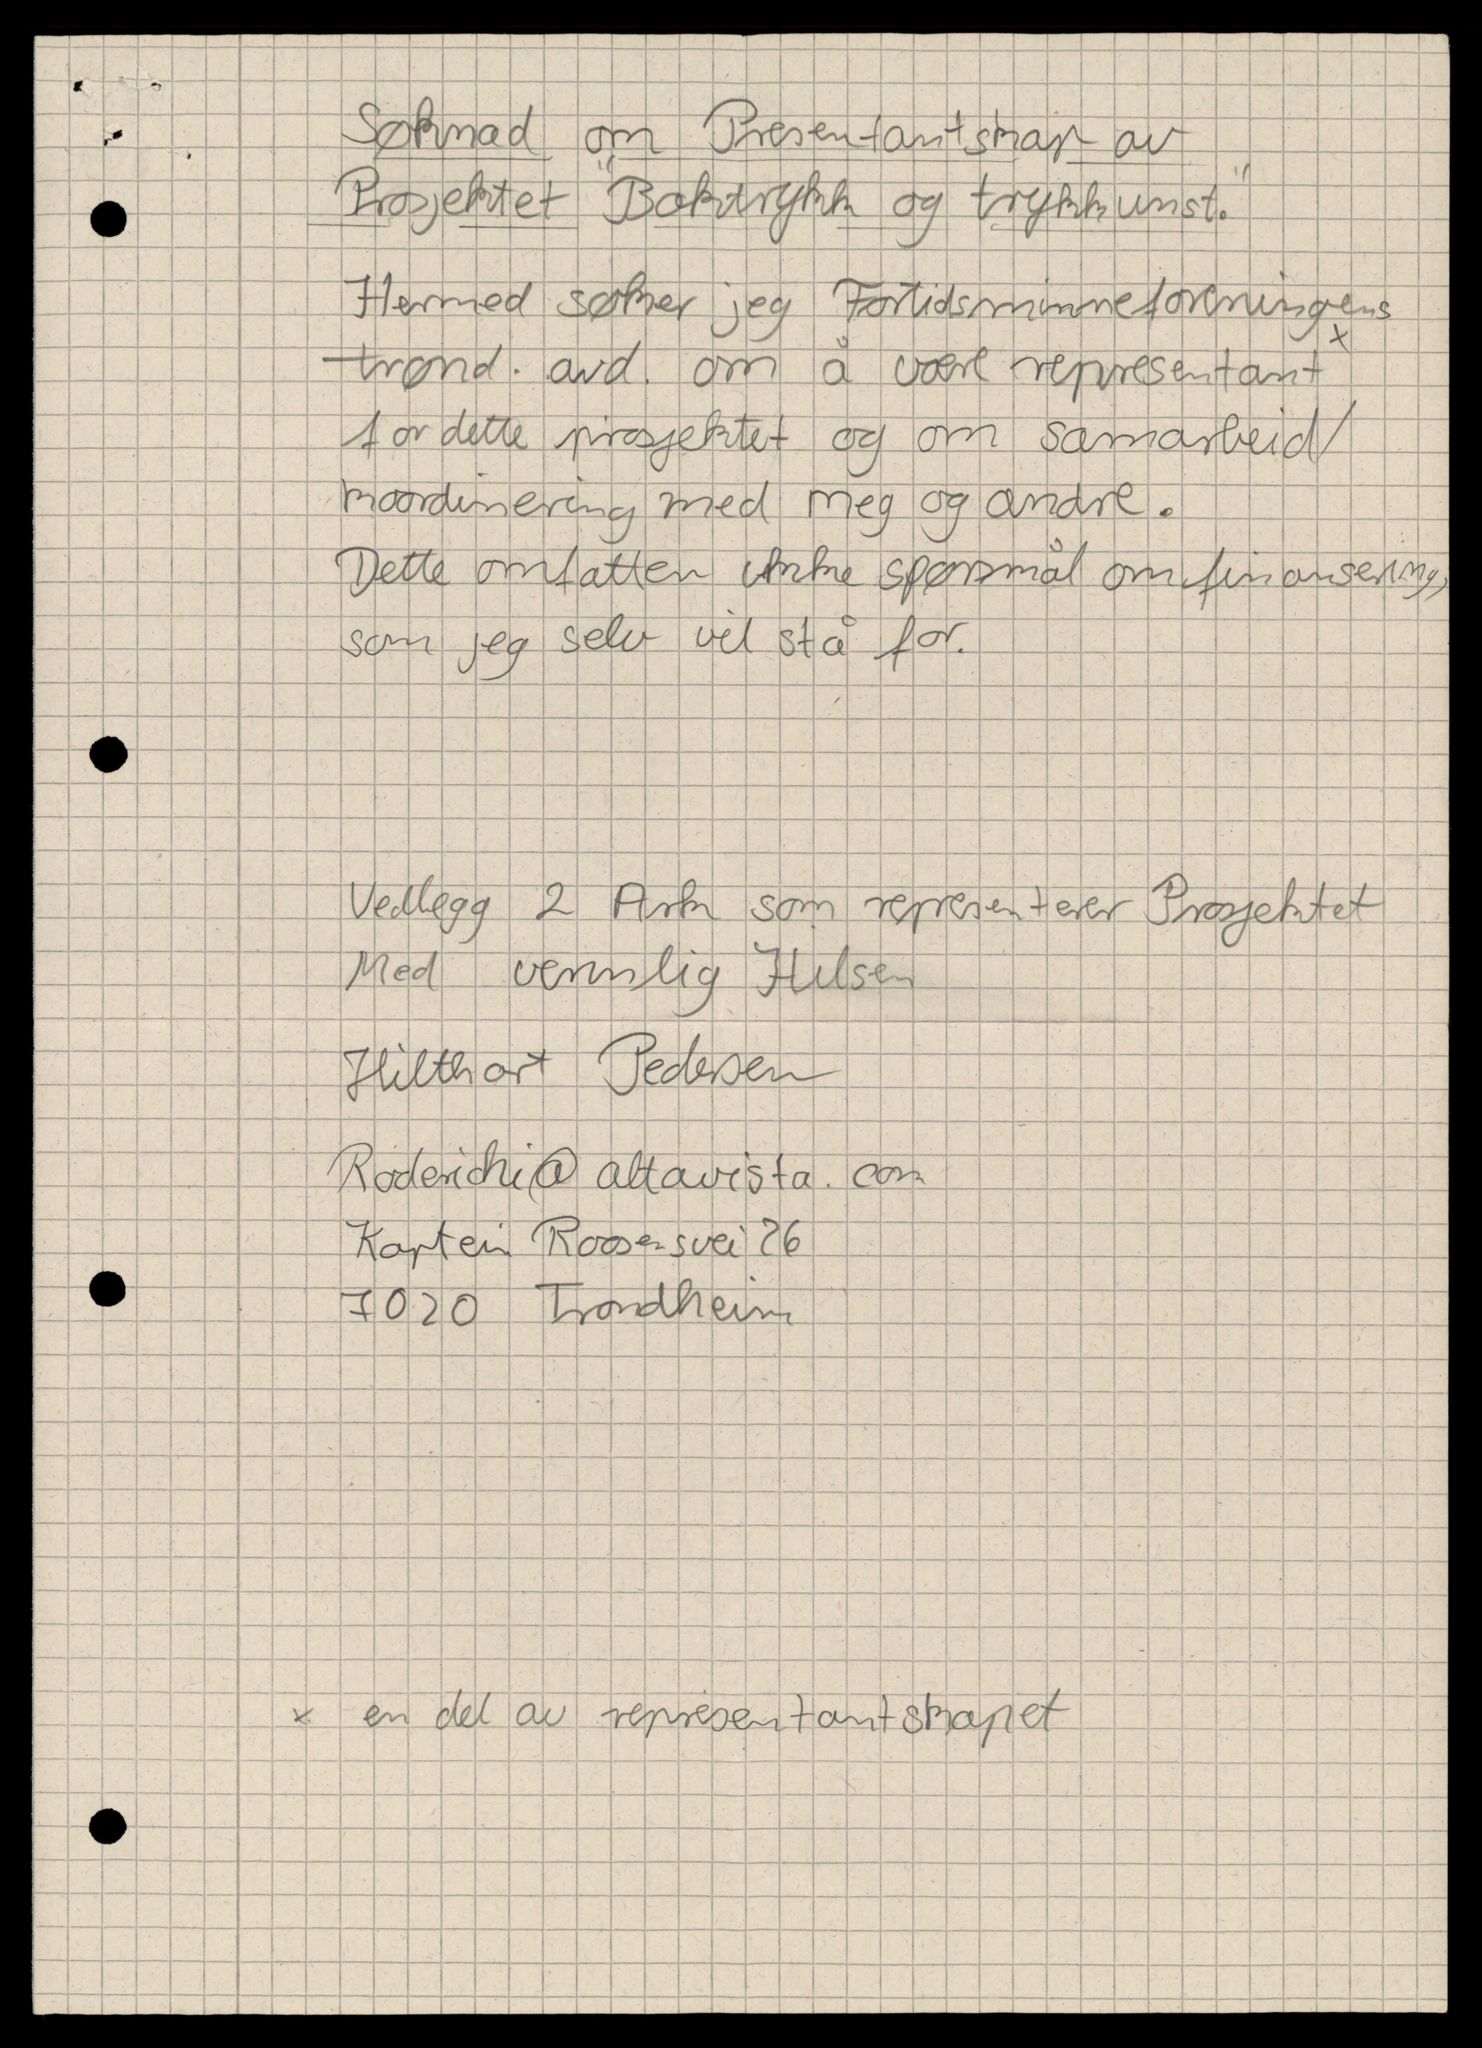 Søknad om Presentantskap av
Prosjektet "Boktrykk og trykkunst."
Hermed søker jeg Fortidsminneforeningens
trønd. avd. om å være representant x
for dette prosjektet og om samarbeid/
koordinering med meg og andre.
Dette omfatter ikke spørsmål om finansering,
som jeg selv vil stå for.
Vedlegg 2 Ark som representerer Prosjektet
Med vennlig Hilsen
Hilthart Pedersen
Roderichi@altavista.com
Kaptein Roosensvei 26
7020 Trondheim
x en del av representantskapet